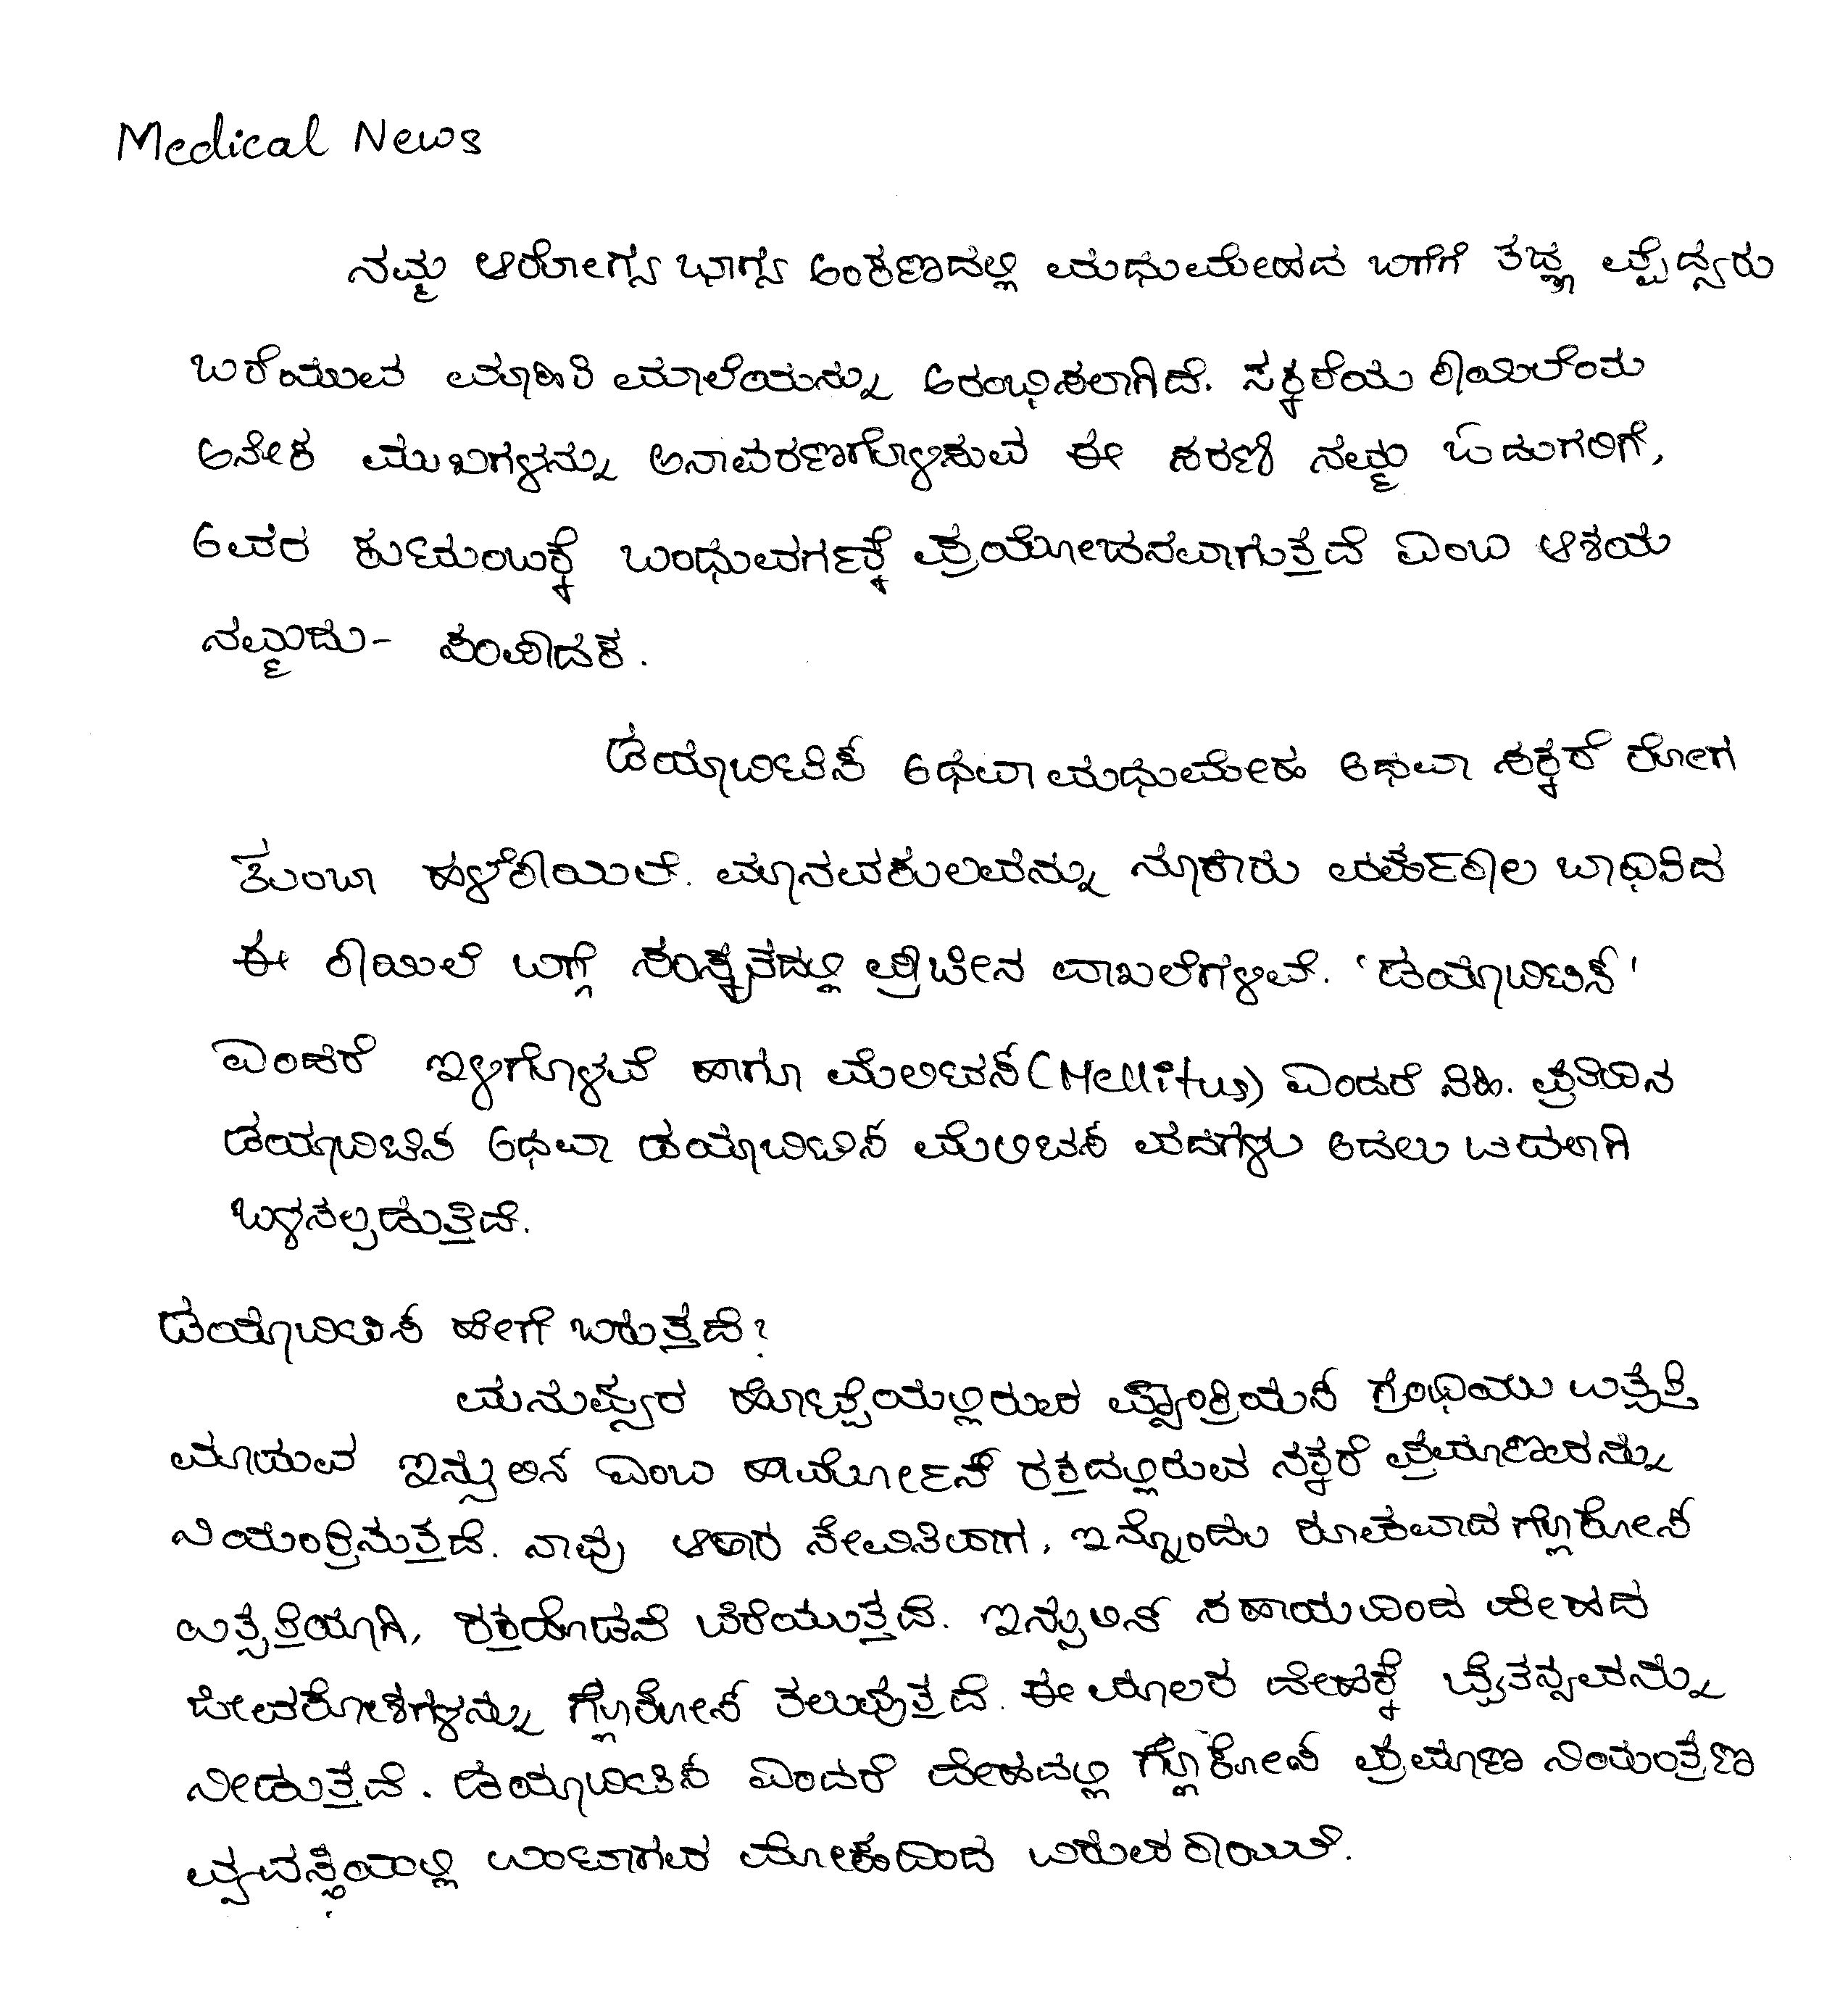 Medical News
ನಮ್ಮ ಆರೋಗ್ಯ ಭಾಗ್ಯ ಅಂಕಣದಲ್ಲಿ ಮಧುಮೇಹದ ಬಗೆಗೆ ತಜ್ಞ ವೈದ್ಯರು
ಬರೆಯುವ ಮಾಹಿತಿ ಮಾಲೆಯನ್ನು ಆರಂಭಿಸಲಾಗಿದೆ. ಸಕ್ಕರೆಯ ಕಾಯಿಲೆಂತು
ಅನೇಕ ಮುಖಗಳನ್ನು ಅನಾವರಣಗೊಳಿಸುವ ಈ ಸರಣಿ ನಮ್ಮ ಓದುಗರಿಗೆ,
ಅವರ ಕುಟುಂಬಕ್ಕೆ ಬಂಧುವರ್ಗಕ್ಕೆ ಪ್ರಯೋಜನವಾಗುತ್ತದೆ ಎಂಬ ಆಶಯ
ನಮ್ಮದು- ಸಂಪಾದಕ.
ಡಯಾಬಿಟಿಸ್ ಅಥವಾ ಮಧುಮೇಹ ಅಥವಾ ಸಕ್ಕರೆ ರೋಗ
ತುಂಬಾ ಹಳೆಕಾಯಿಲೆ. ಮಾನವಕುಲವನ್ನು ನೂರಾರು ವರ್ಷಕಾಲ ಬಾಧಿಸಿದ
ಈ ಕಾಯಿಲೆ ಬಗ್ಗೆ ಸಂಸ್ಕೃತದಲ್ಲೂ ಪ್ರಾಚೀನ ದಾಖಲೆಗಳಿವೆ. 'ಡಯಾಬಿಟಿಸ್'
ಎಂದರೆ ಇಳಿಗೊಳವೆ ಹಾಗೂ ಮೆಲಿಟಸ್ (Mellitus) ಎಂದರೆ ಸಿಹಿ. ಪ್ರತಿದಿನ
ಡಯಾಬಿಟಿಸ್ ಅಥವಾ ಡಯಾಬಿಟಿಸ್ ಮೆಲಿಟಸ್ ಪದಗಳು ಅದಲು ಬದಲಾಗಿ
ಬಳಸಲ್ಪಡುತ್ತಿದೆ.
ಡಯಾಬಿಟಿಸ್ ಹೇಗೆ ಬರುತ್ತದೆ?
ಮನುಷ್ಯರ ಹೊಟ್ಟೆಯಲ್ಲಿರುವ ಪ್ಯಾಂಕ್ರಿಯಸ್ ಗ್ರಂಥಿಯು ಉತ್ಪತ್ತಿ
ಮಾಡುವ ಇನ್ಸುಲಿನ್ ಎಂಬ ಹಾರ್ಮೋನ್ ರಕ್ತದಲ್ಲಿರುವ ಸಕ್ಕರೆ ಪ್ರಮಾಣವನ್ನು
ನಿಯಂತ್ರಿಸುತ್ತದೆ. ನಾವು ಆಹಾರ ಸೇವಿಸಿದಾಗ, ಇನ್ನೊಂದು ರೂಪವಾದ ಗ್ಲೂಕೋಸ್
ಉತ್ಪತ್ತಿಯಾಗಿ, ರಕ್ತದೊಡನೆ ಬೆರೆಯುತ್ತದೆ. ಇನ್ಸುಲಿನ್ ಸಹಾಯದಿಂದ ದೇಹದ
ಜೀವಕೋಶಗಳನ್ನು ಗ್ಲೂಕೋಸ್ ತಲುಪುತ್ತದೆ. ಈ ಮೂಲಕ ದೇಹಕ್ಕೆ ಚೈತನ್ಯವನ್ನು
ನೀಡುತ್ತದೆ. ಡಯಾಬಿಟಿಸ್ ಎಂದರೆ ದೇಹದಲ್ಲಿ ಗ್ಲೂಕೋಸ್ ಪ್ರಮಾಣ ನಿಯಂತ್ರಣ
ವ್ಯವಸ್ಥೆಯಲ್ಲಿ ಉಂಟಾಗುವ ದೋಷದಿಂದ ಬರುವ ಕಾಯಿಲೆ.